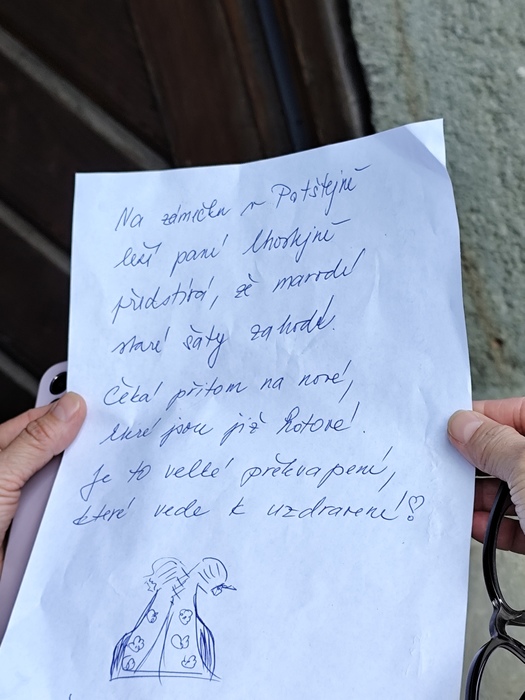 Na zámečku v Potštejně
leží paní lhostejně
předstírá, že marodí
staré šaty zahodí.
Čeká přitom na nové,
které jsou již hotové.
Je to velké překvapení,
které vede k uzdravení!